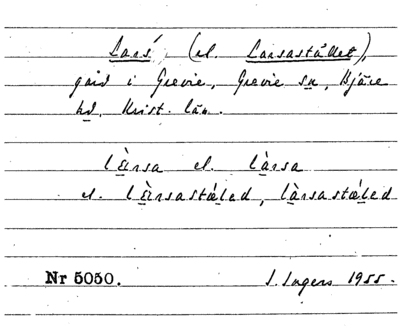 Lars, (el. Larsastället),
gård i Grevie, Grevie sn, Bjäre
hd, Krist. län.
lèrsa el. làrsa
el. lèrsastæled, làrsastæled
Nr 5050.
S. Ingers 1955.